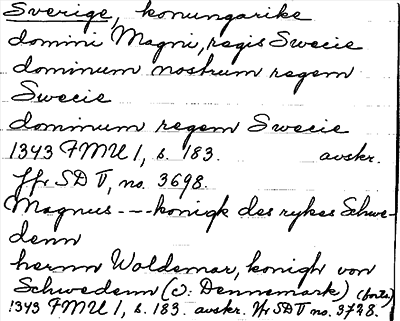 Sverige, konungarike
domini Magni, regis Swecie
dominum nostrum regem
Swecie
dominum regem Swecie
1343 FMU 1, s. 183. avskr.
Jfr SD V, no. 3698.
Magnus --- konigk des rykes Schwe-
denn
herrn Woldemar, konigh von
Schwedenn (ɔ: Dennemark) (forts.)
1343 FMU 1, s. 183. avskr. Jfr SD V no. 3728.